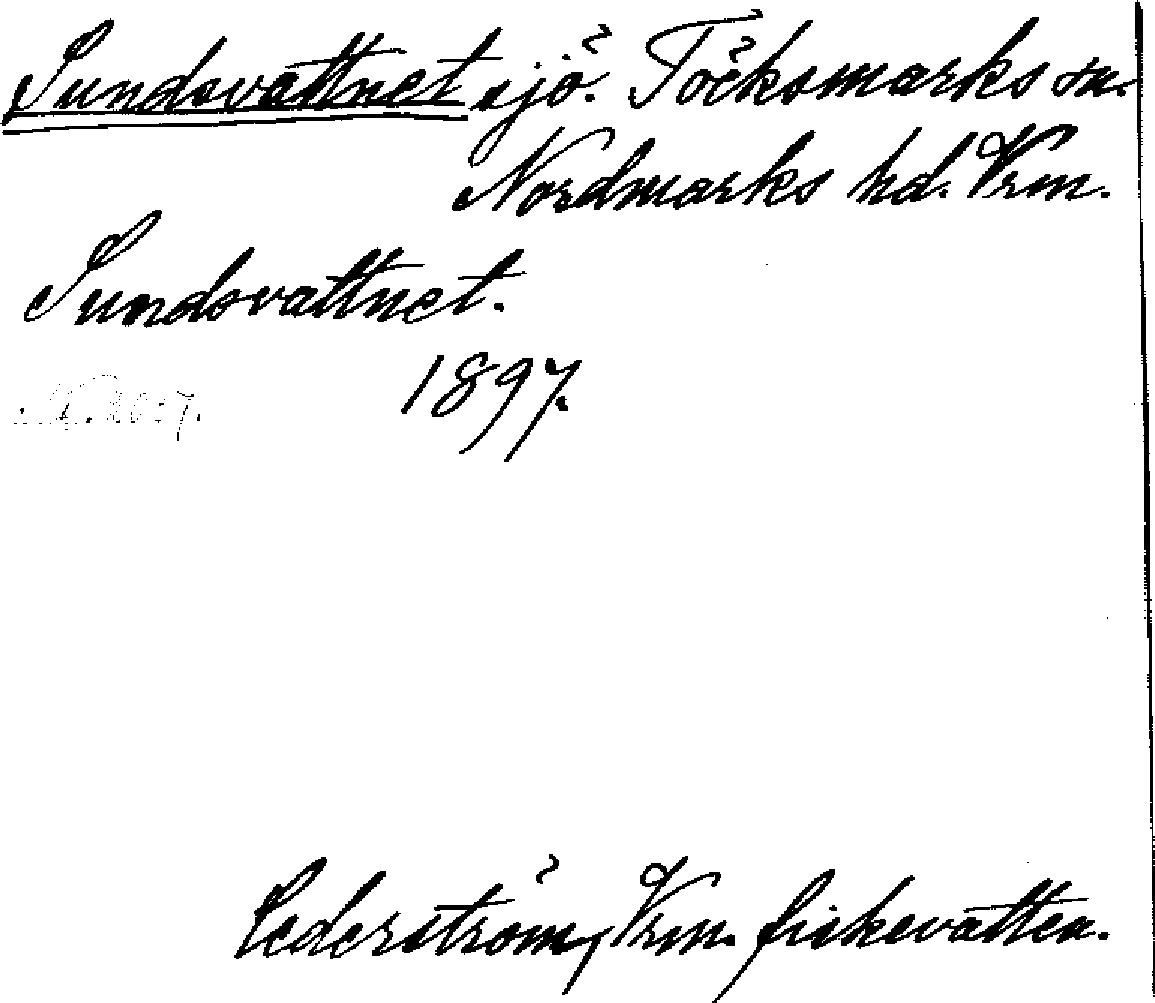 Sundsvattnet sjö. Töcksmarks sn.
Nordmarks hd. Vrm.
Sundsvattnet.
1897.
Cederström, Vrm. fiskevatten.